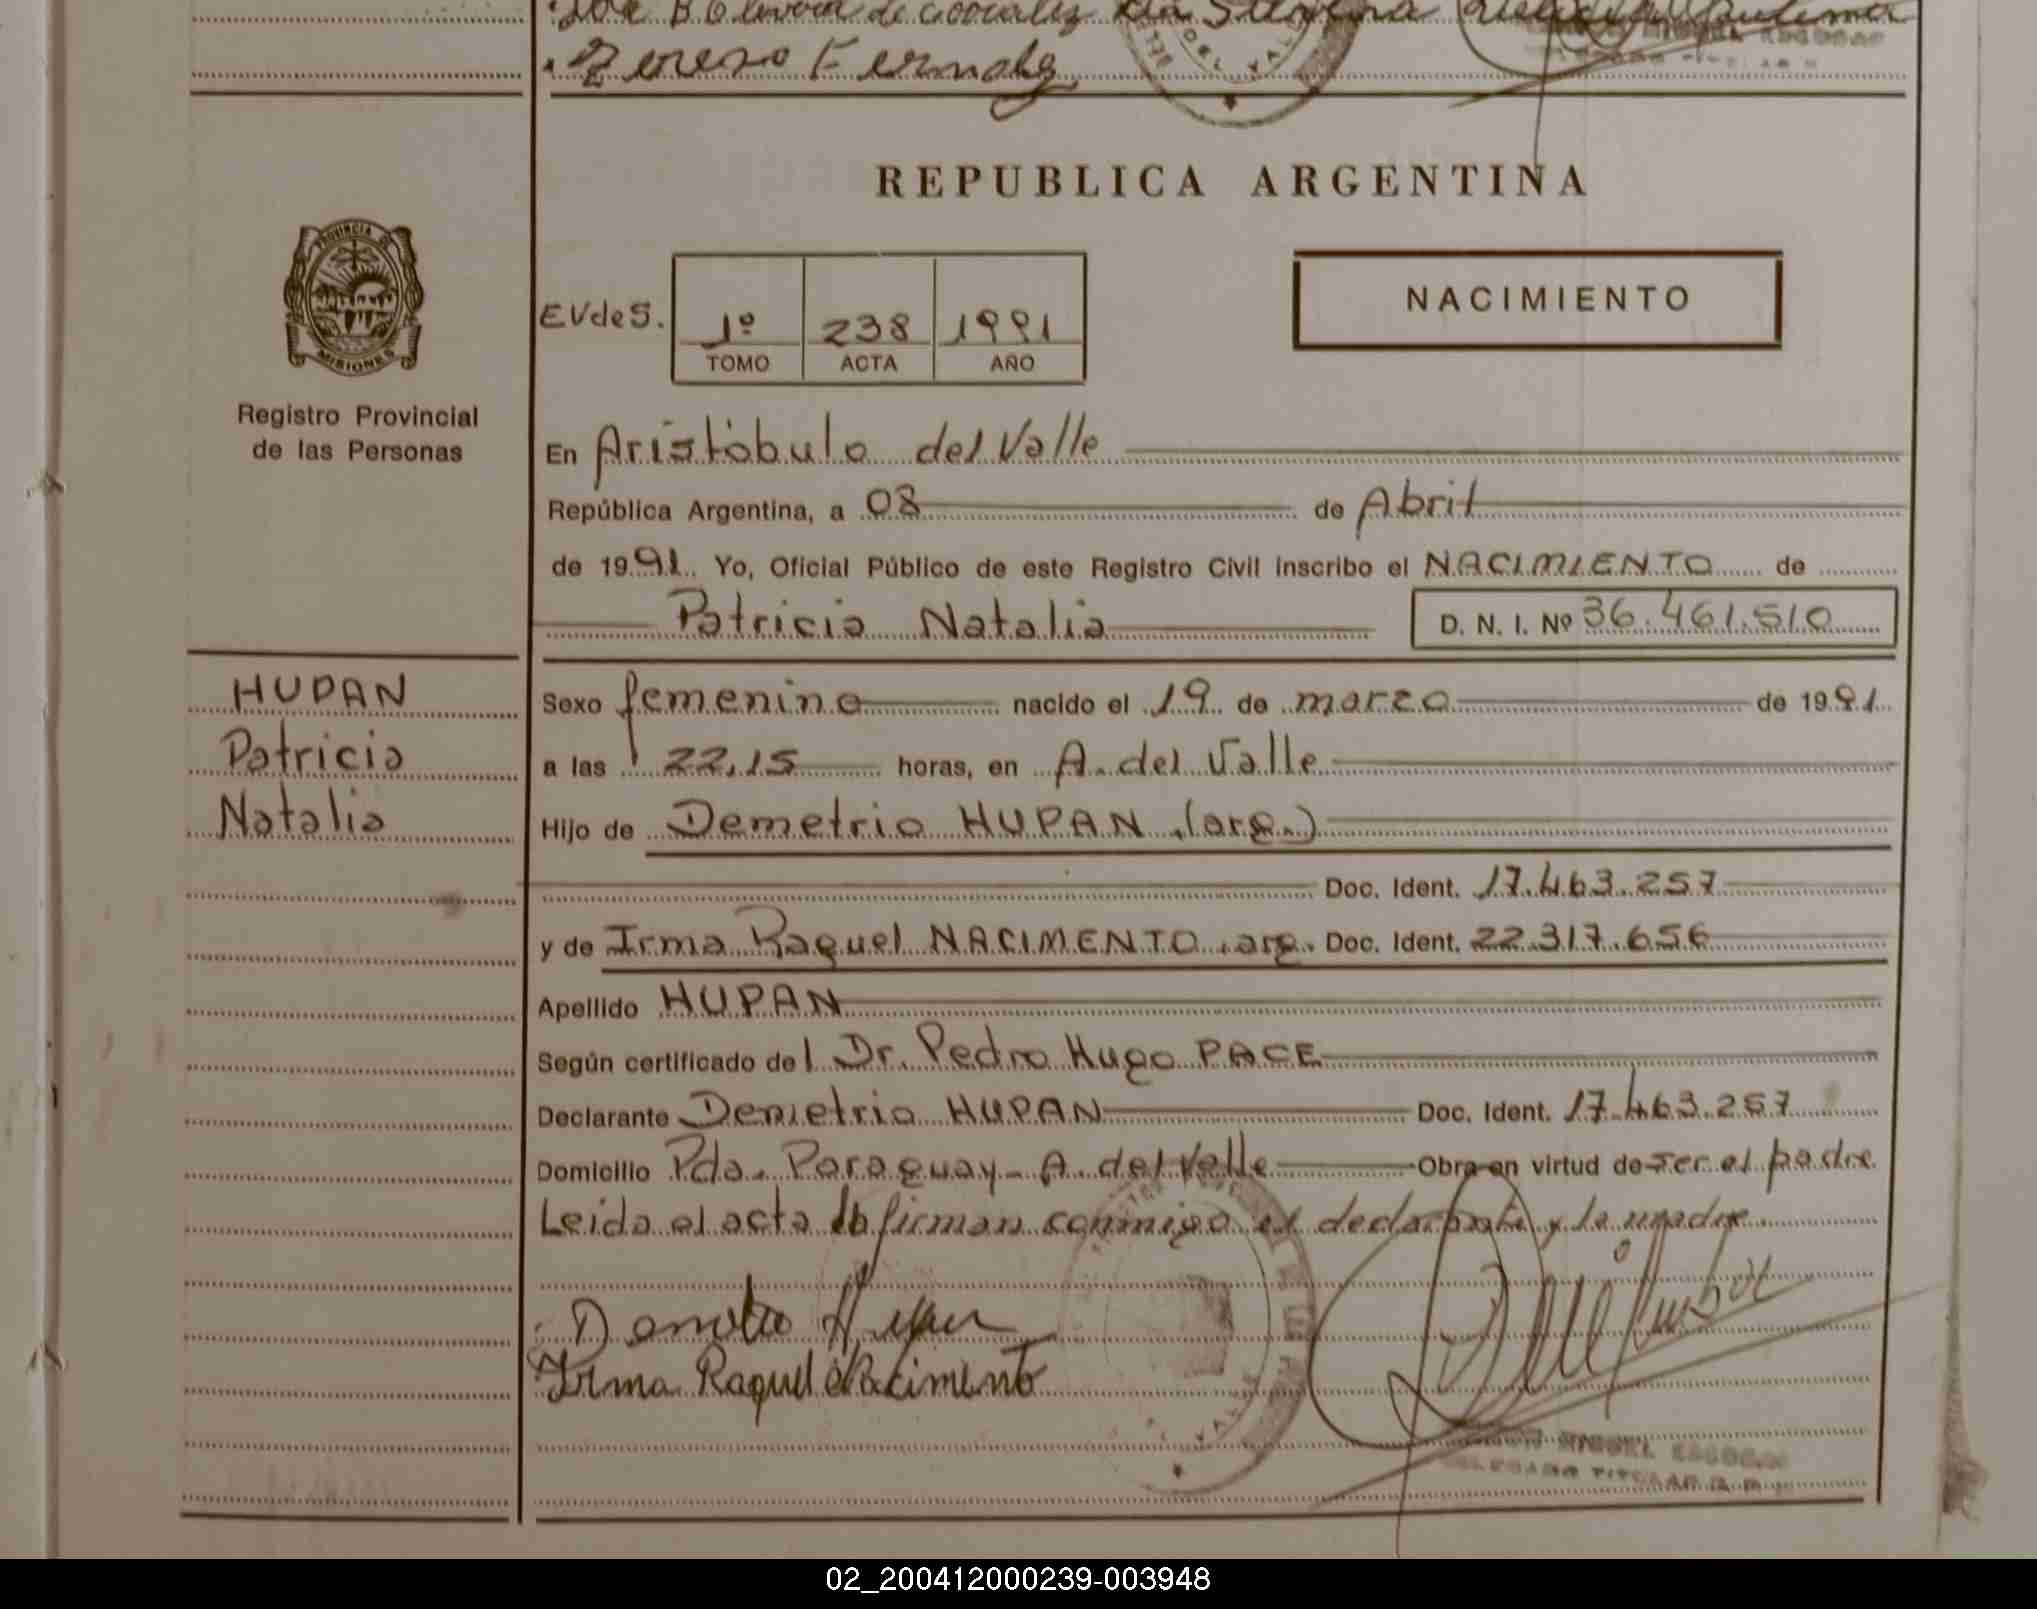 REPUBLICA ARGENTINA
PROVINCIA DE
MISIONES
Registro Provincial
de las Personas
EVdeS.
1º 238 1991
TOMO ACTA AÑO
NACIMIENTO
En Aristóbulo del Valle
República Argentina, a 08 de Abril
de 1991 Yo, Oficial Público de este Registro Civil inscribo el NACIMIENTO de
Patricia Natalia
D. N. I. Nº 36.461.510
HUPAN
Patricia
Natalia
Sexo femenino nacido el 19 de marzo de 1991
a las 22,15 horas, en A. del Valle
Hijo de Demetrio HUPAN (arg.)
Doc. Ident. 17.463.257
y de Irma Raquel NACIMENTO arg. Doc. Ident. 22.317.656
Apellido HUPAN
Según certificado del Dr. Pedro Hugo PACE
Declarante Demetrio HUPAN Doc. Ident. 17.463.257
Domicilio Pda. Paraguay - A. del Valle Obra en virtud de ser el padre
Leida el acta la firman conmigo el declarante y la madre
Irma Raquel Nacimento
MIGUEL
DELEGADO TITULAR R. P.
02_200412000239-003948